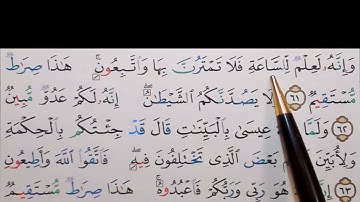 وَإِنَّهُۥ لَعِلْمٌ لِّلسَّاعَةِ فَلَا تَمْتَرُنَّ بِهَا وَٱتَّبِعُونِ ۚ هَٰذَا صِرَٰطٌ
مُّسْتَقِيمٌ ٦١ لَا يَصُدَّنَّكُمُ ٱلشَّيْطَٰنُ ۖ إِنَّهُۥ لَكُمْ عَدُوٌّ مُّبِينٌ
٦٢ وَلَمَّا عِيسَىٰ بِٱلْبَيِّنَٰتِ قَالَ قَدْ جِئْتُكُم بِٱلْحِكْمَةِ
وَلِأُبَيِّنَ بَعْضَ ٱلَّذِى تَخْتَلِفُونَ فِيهِ ۖ فَٱتَّقُوا۟ ٱللَّهَ وَأَطِيعُونِ
٦٣ إِنَّ هُوَ رَبِّى وَرَبُّكُمْ فَٱعْبُدُوهُ ۚ هَٰذَا صِرَٰطٌ مُّسْتَقِيمٌ